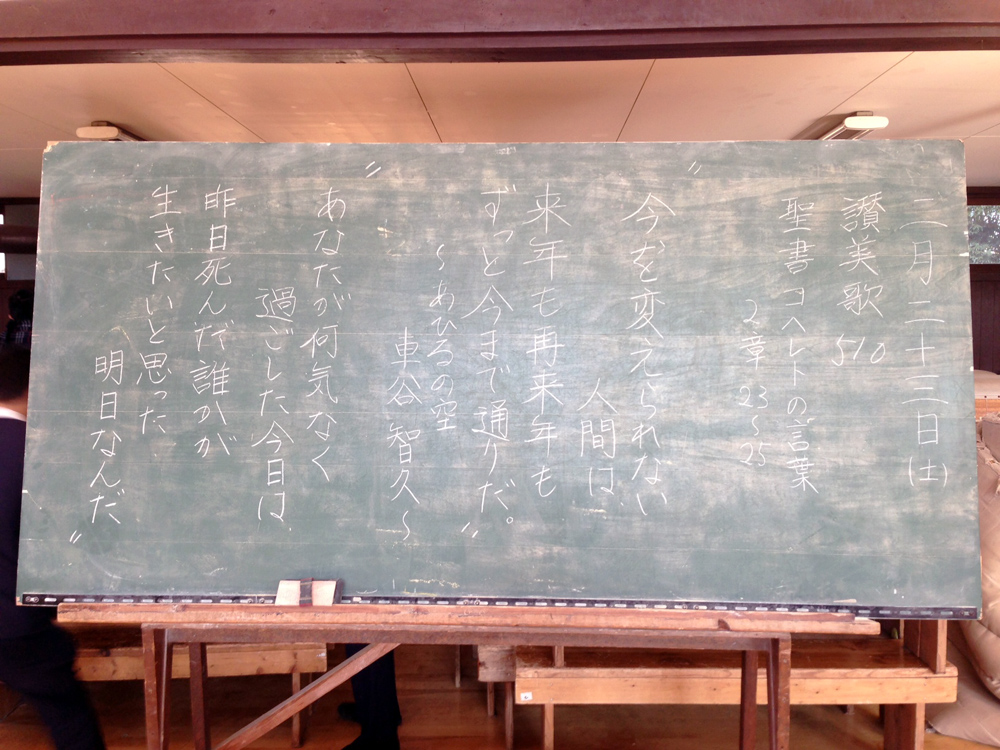 二月二十三日(土)
讃美歌 510
聖書 コヘレトの言葉
2章23~25
"今を変えられない
人間は
来年も再来年も
ずっと今まで通りだ。"
~あひるの空
車谷智久~
"あなたが何気なく
過ごした今日は
昨日死んだ誰かが
生きたいと思った
明日なんだ"